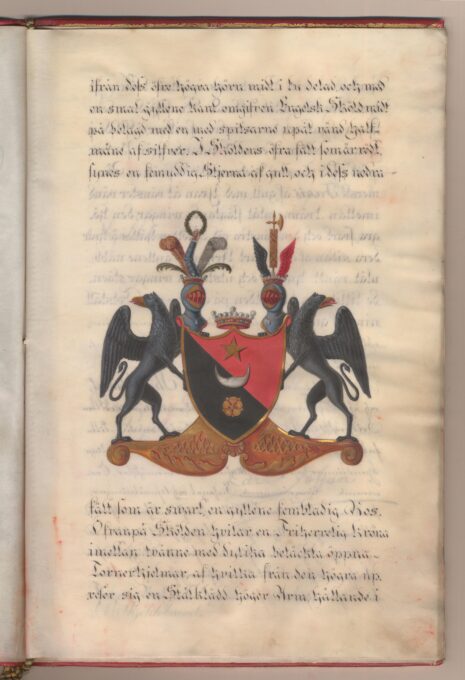 ifrån dess öfre högra hörn midt i tu delad och med
en smal gyllene kant omgifven Engelsk Sköld midt
på belagd med en med spitsarne upåt vänd half-
måne af silfver. I Sköldens öfra fält som är rödt,
synes en femuddig Stjerna af guld, och i dess nedra
fält som är swart, en gyllene fembladig Ros.
Ofvanpå Skölden hvilar en Friherrelig Krona
imellan tvänne med dylika betäckta öppna
Tornerhjelmar, af hvilka från den högra up-
reser sig en Stålklädd höger Arm, hållande i